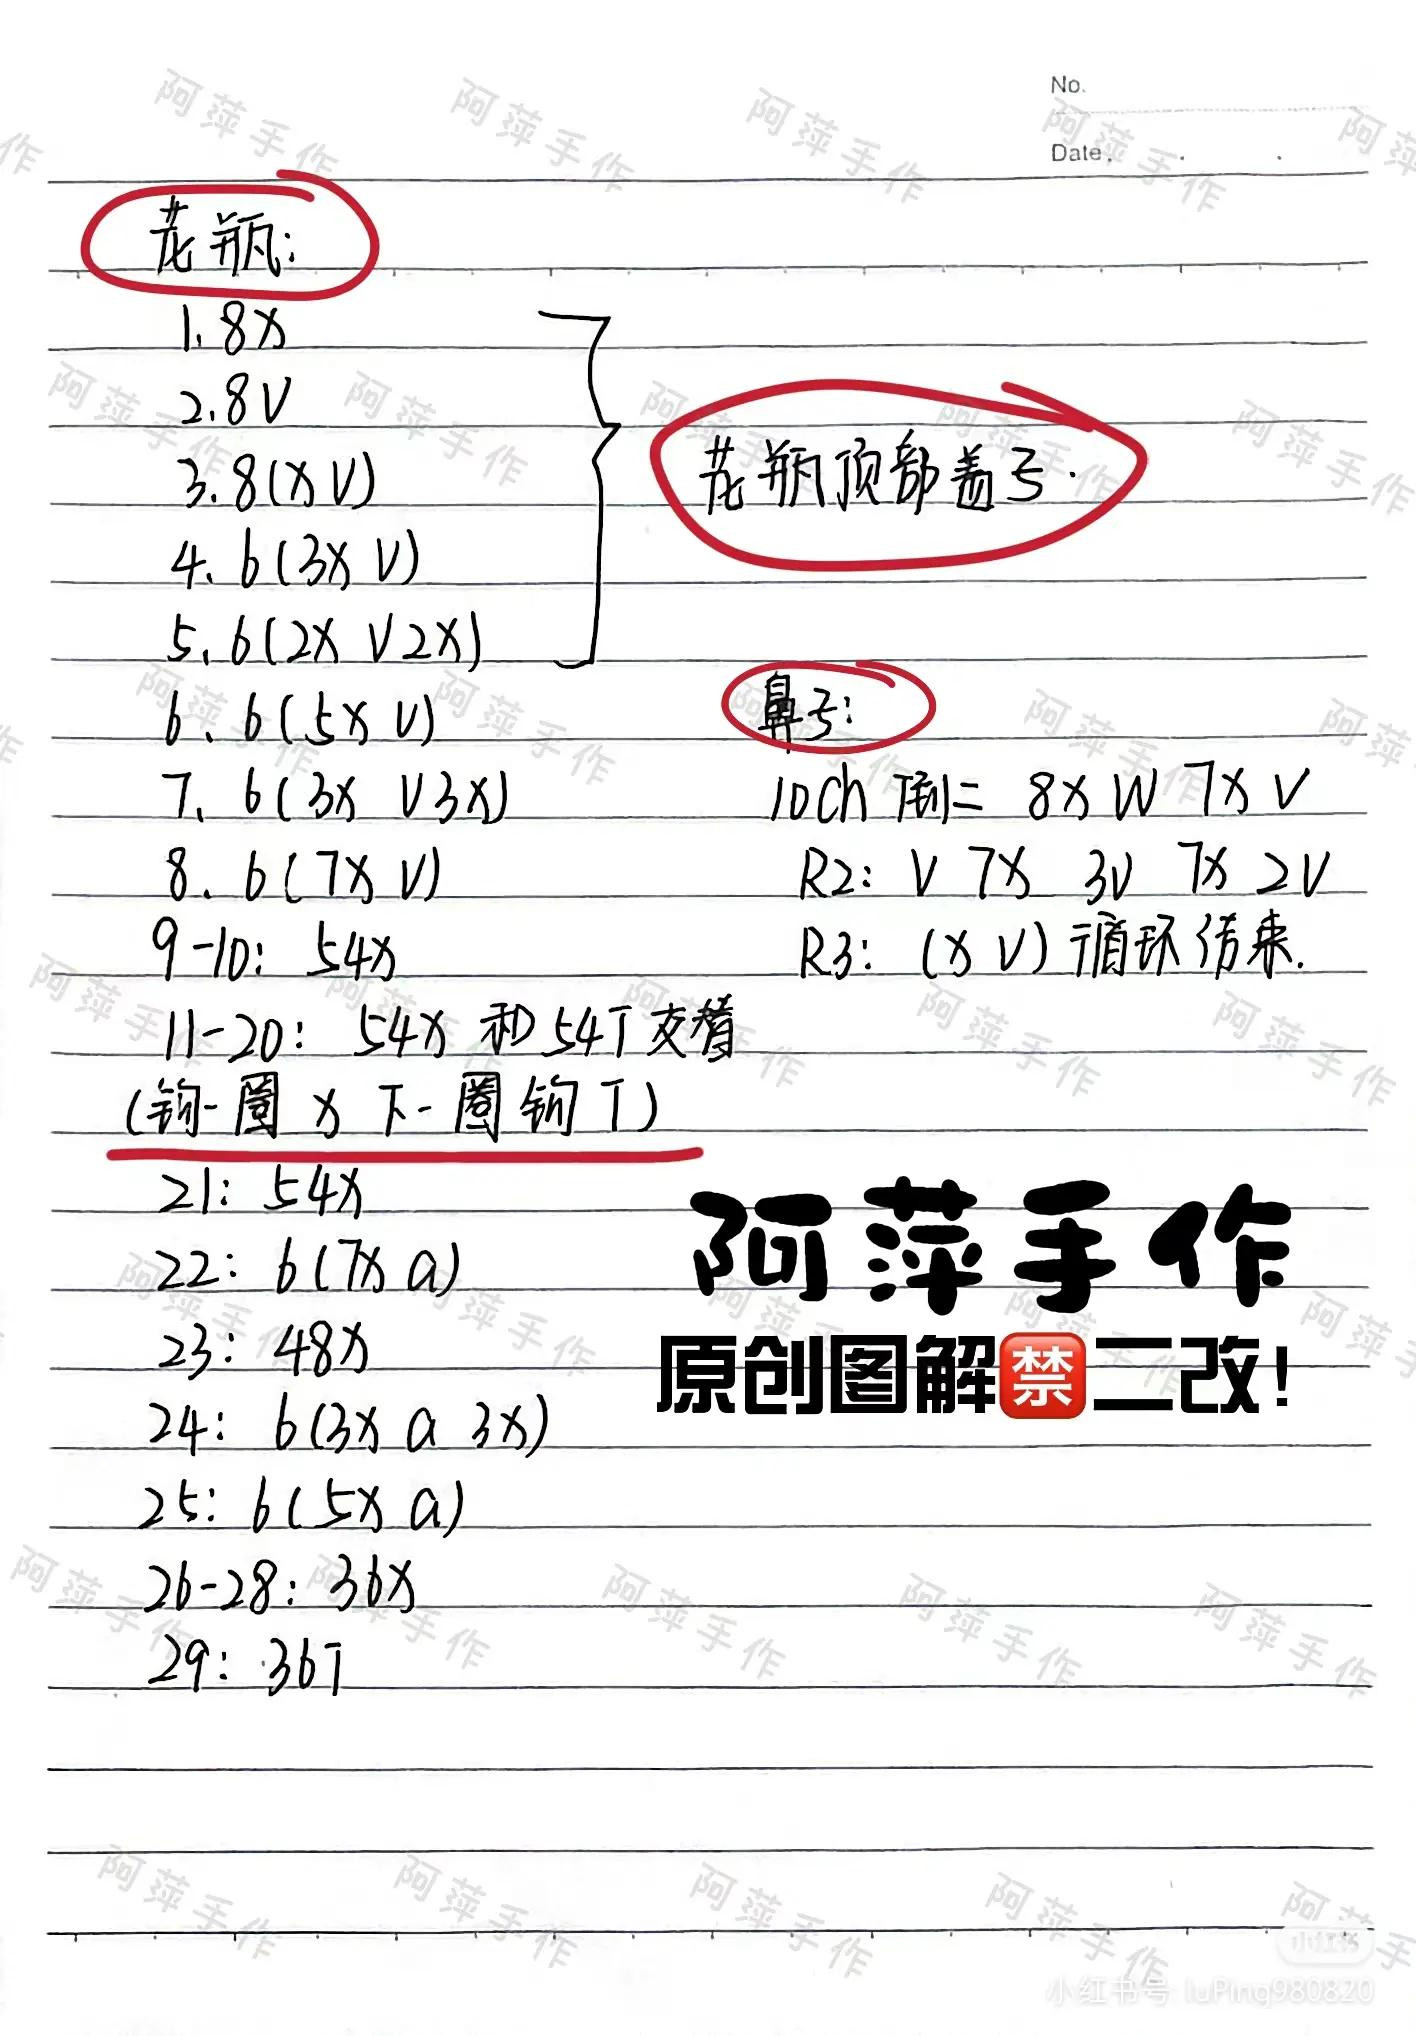 No.
Date.
花瓶:
1. 8X
2. 8V
3. 8(X V)
4. 6(3X V)
5. 6(2X V 2X)
花瓶顶部盖子.
6. 6(5X V)
7. 6(3X V 3X)
8. 6(7X V)
9-10: 54X
11-20: 54X 和 54T 交替
(钩一圈 X 下一圈钩 T)
21: 54X
22: 6(7X a)
23: 48X
24: 6(3X a 3X)
25: 6(5X a)
26-28: 36X
29: 36T
鼻子:
10Ch 倒二 8X W 7X V
R2: V 7X 3V 7X 2V
R3: (X V) 循环结束.
阿萍手作
原创图解禁二改!
小红书
小红书号: luPing980820